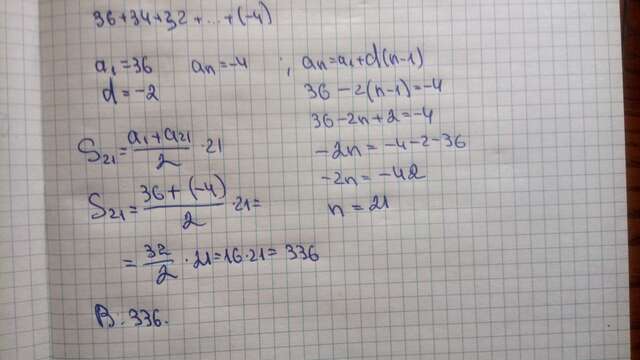 36+34+32+...+(-4)
a₁=36 aₙ=-4 ; aₙ=a₁+d(n-1)
d=-2
36-2(n-1)=-4
36-2n+2=-4
-2n=-4-2-36
-2n=-42
n=21
S₂₁=(a₁+a₂₁)/2 ·21
S₂₁=(36+(-4))/2 ·21=
=32/2 ·21=16·21=336
В: 336.